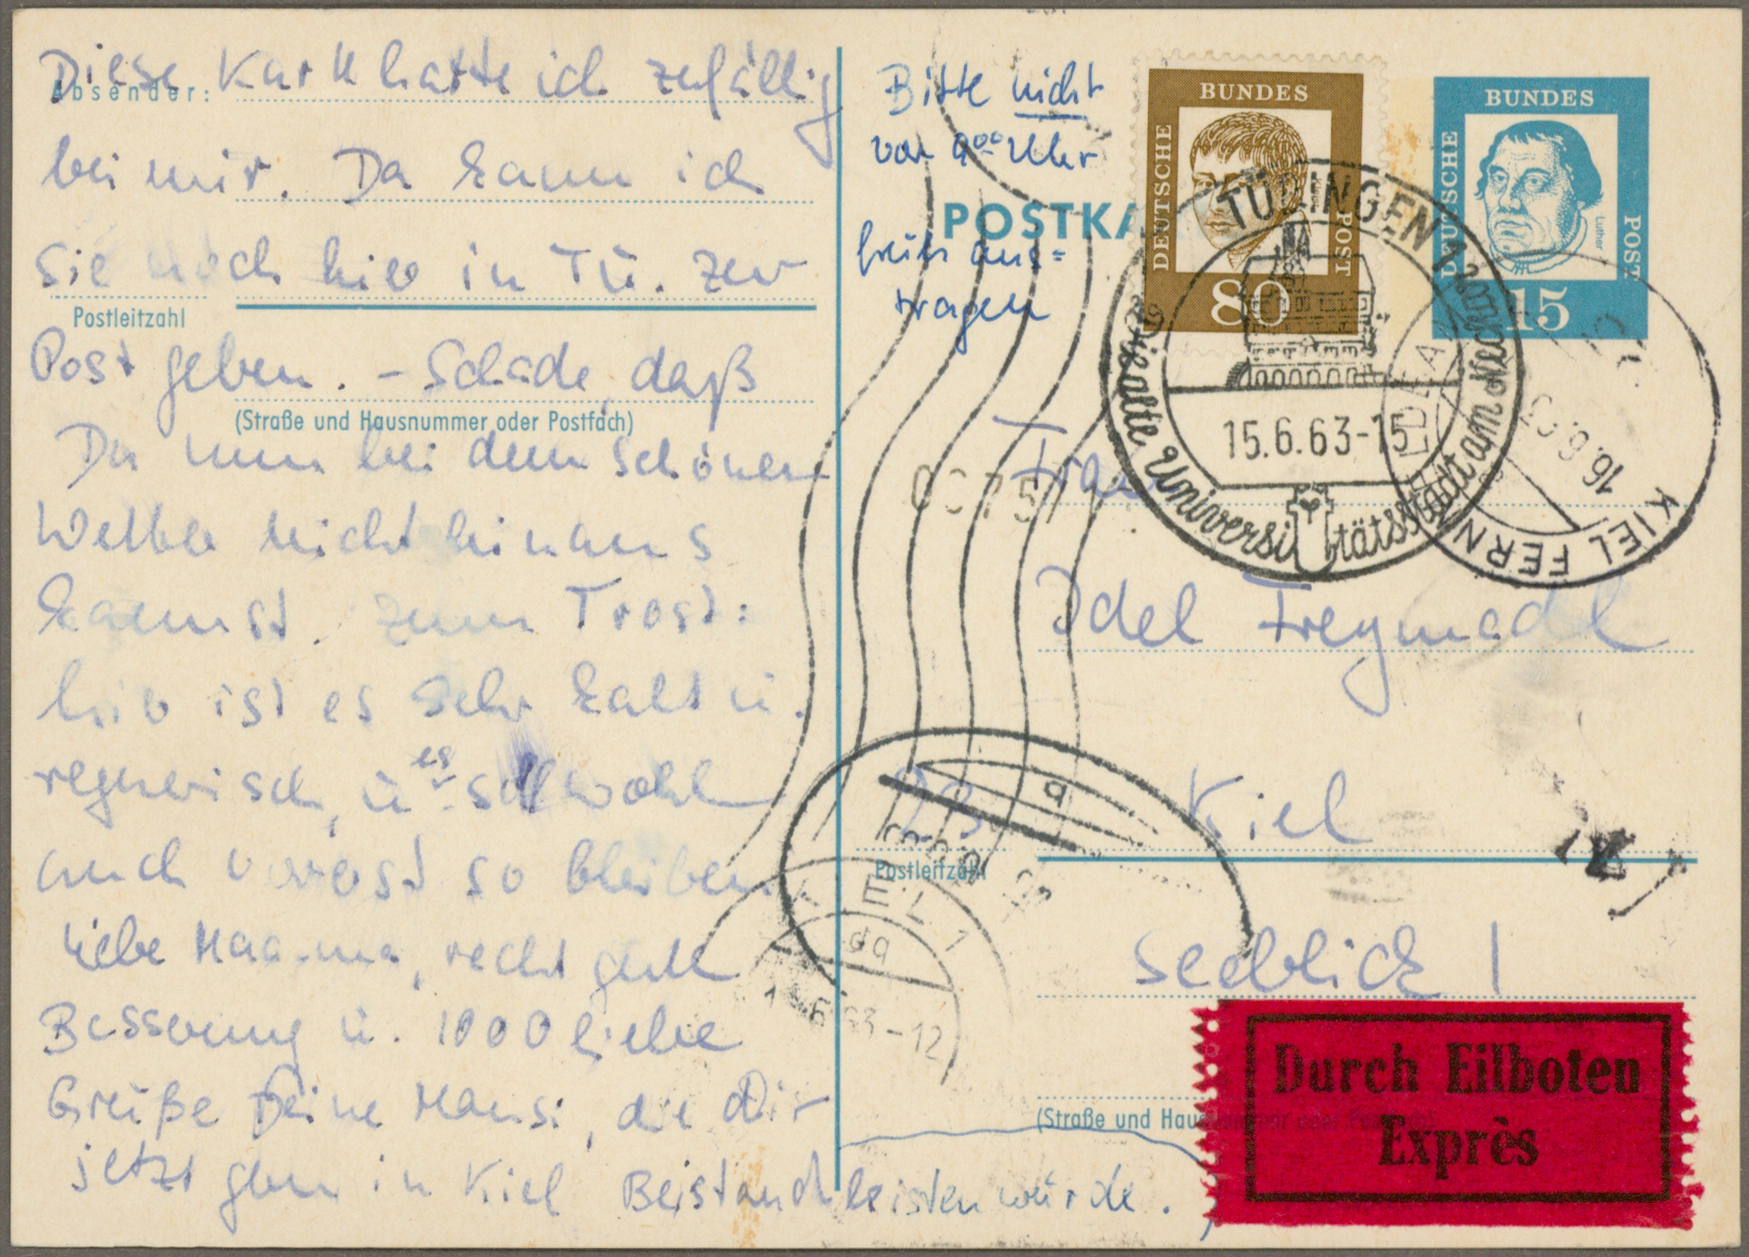 Diese Karte hatte ich zufällig
Absender:
bei mir. Da kann ich
sie noch hier in Tü. zur
Postleitzahl
Post geben. – Schade, daß
(Straße und Hausnummer oder Postfach)
Du nun bei dem schönen
Wetter nicht hinaus
kannst. Zum Trost:
hier ist es sehr kalt u.
regnerisch, u. es soll wohl
auch vorerst so bleiben.
Liebe Maa-ma, recht gute
Besserung u. 1000 liebe
Grüße Deine Mausi, die Dir
jetzt gern in Kiel Beistand leisten würde.
Bitte nicht
vor 9 00 Uhr
früh aus=
tragen
POSTKA
BUNDES
DEUTSCHE
POST
80
BUNDES
DEUTSCHE
POST
Luther
15
TÜBINGEN 1
Die alte Universitätsstadt am Neckar
15.6.63-15
KIEL FERN
16.6.63
00757
Frau
Idel Freymadl
23 Kiel
Postleitzahl
Seeblick 1
(Straße und Hausnummer oder Postfach)
KIEL 1
da
6.63-12
Durch Eilboten
Exprès